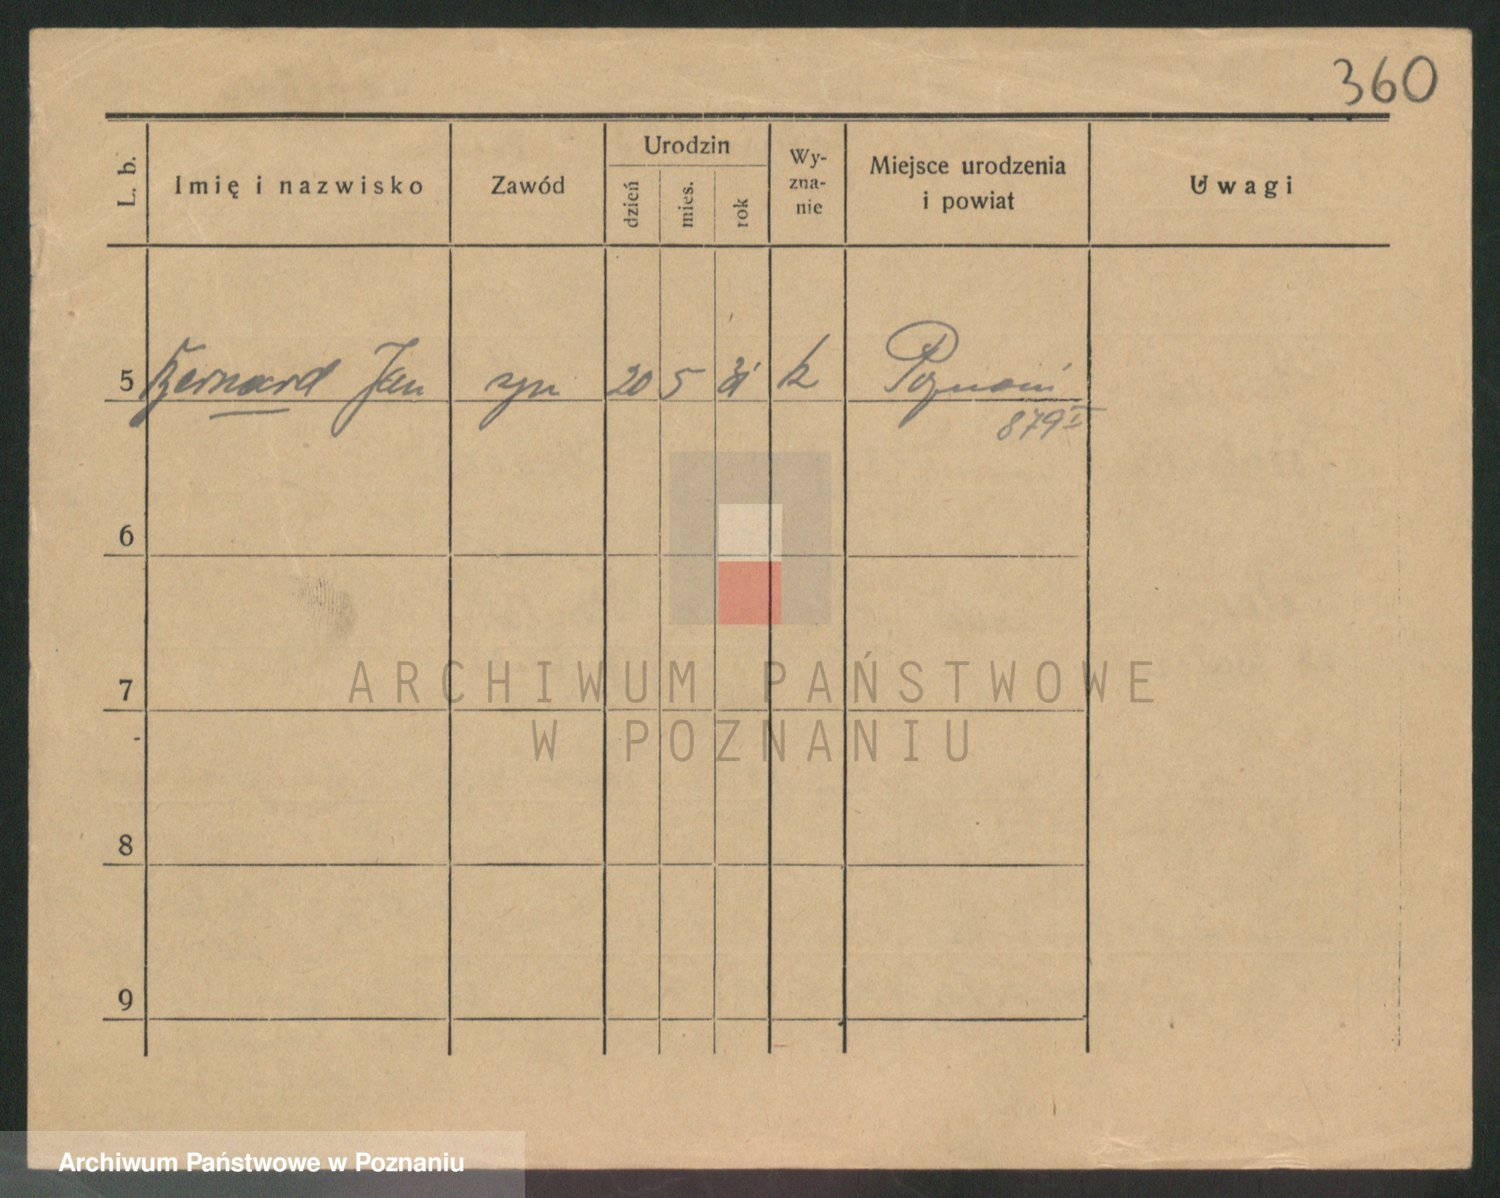 360
L. b. Imię i nazwisko Zawód Urodzin dzień mies. rok Wy-zna-nie Miejsce urodzenia i powiat Uwagi
5 Bernard Jan syn 20 5 31 k Poznań
879 I
6
7
8
9
ARCHIWUM PAŃSTWOWE
W POZNANIU
Archiwum Państwowe w Poznaniu